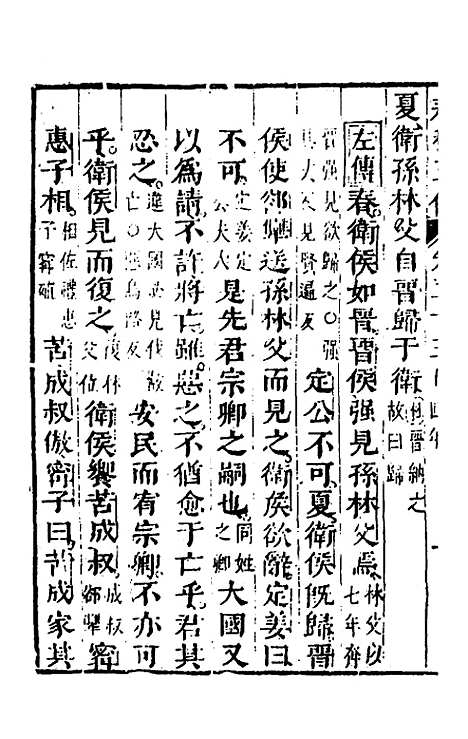 夏衛孫林父自晉歸于衛由晉納之故曰歸
左傳春衛侯如晉晉侯强見孫林父焉林父以七年奔
晉强見欲歸之○强其丈反見賢遍反定公不可夏衛侯旣歸晉
侯使郤犫送孫林父而見之衛侯欲辭定姜曰
不可定姜定公夫人是先君宗卿之嗣也同姓之卿大國又
以爲請不許將亡雖惡之不猶愈于亡乎君其
忍之違大國必見伐故亡○惡烏路反安民而宥宗卿不亦可
乎衛侯見而復之復林父位衛侯饗苦成叔成叔郤犫甯
惠子相相佐禮惠子甯殖苦成叔傲甯子曰苦成家其